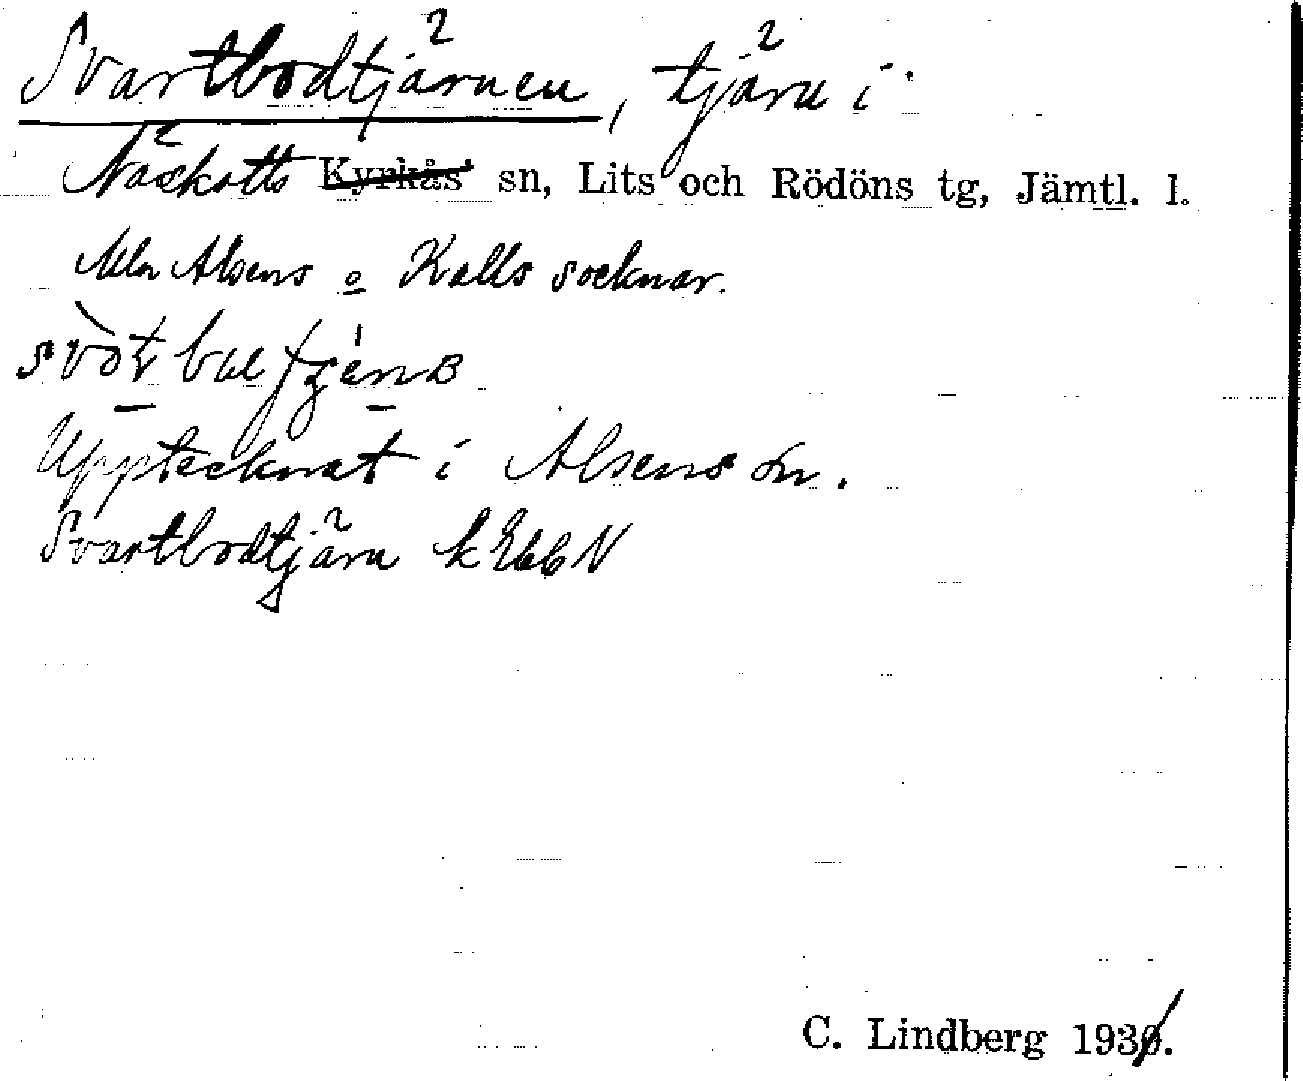 Svartbodtjärnen, tjärn i
Näskotts Kyrkås sn, Lits och Rödöns tg, Jämtl. l.
Mln Alsens o Kalls socknar.
Upptecknat i Alsens sn.
Svartbodtjärn k EbbN
C. Lindberg 193